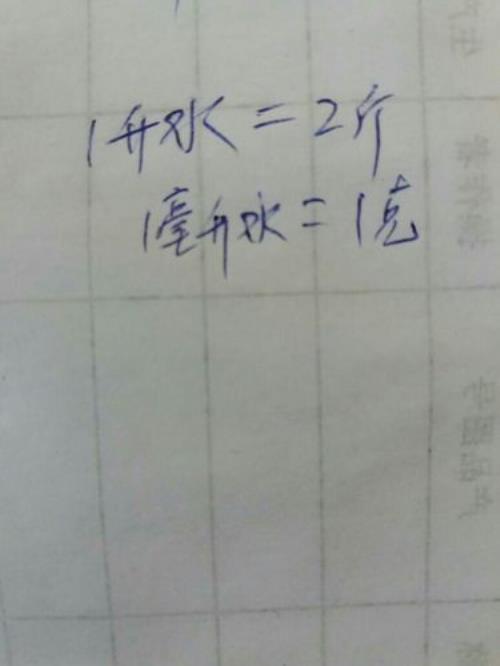 1升水=2斤
1毫升水=1克